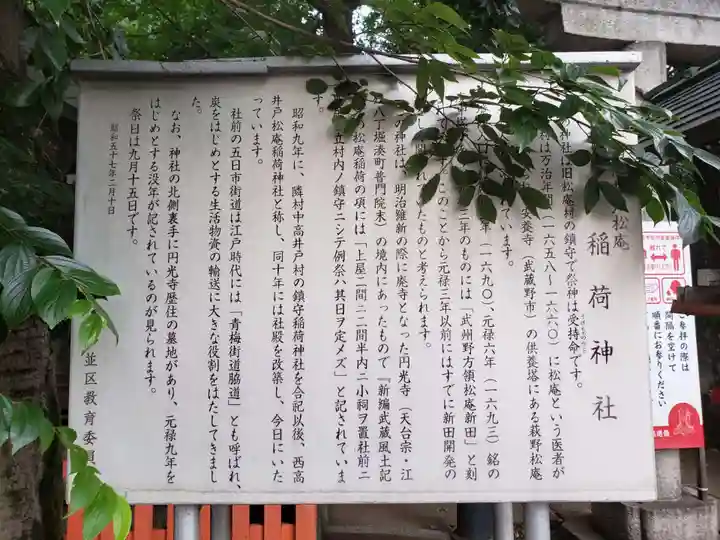 松庵
稲荷神社
神社は旧松庵村の鎮守で祭神は受持命です。
村は万治年間（一六五八～一六六〇）に松庵という医者が
安養寺（武蔵野市）の供養塔にある萩野松庵
ています。
年（一六九〇）、元禄六年（一六九三）銘の
三年のものには「武州野方領松庵新田」と刻
このことから元禄三年以前にはすでに新田開発の
れていたものと考えられます。
の神社は、明治維新の際に廃寺となった円光寺（天台宗・江
八丁堀湊町普門院末）の境内にあったもので『新編武蔵風土記
松庵稲荷の項には「上屋二間ニ二間半内ニ小祠ヲ置社前ニ
立村内ノ鎮守ニシテ例祭ハ其日ヲ定メズ」と記されていま
す。
昭和九年に、隣村中高井戸村の鎮守稲荷神社を合祀以後、西高
井戸松庵稲荷神社と称し、同十年には社殿を改築し、今日にいた
っています。
社前の五日市街道は江戸時代には「青梅街道脇道」とも呼ばれ、
炭をはじめとする生活物資の輸送に大きな役割をはたしてきまし
た。
なお、神社の北側裏手に円光寺歴住の墓地があり、元禄九年を
はじめとする没年が記されているのが見られます。
祭日は九月十五日です。
昭和五十七年二月十日
並区教育委員
ご参拝の際は
間隔を空けて
順番にお参りください